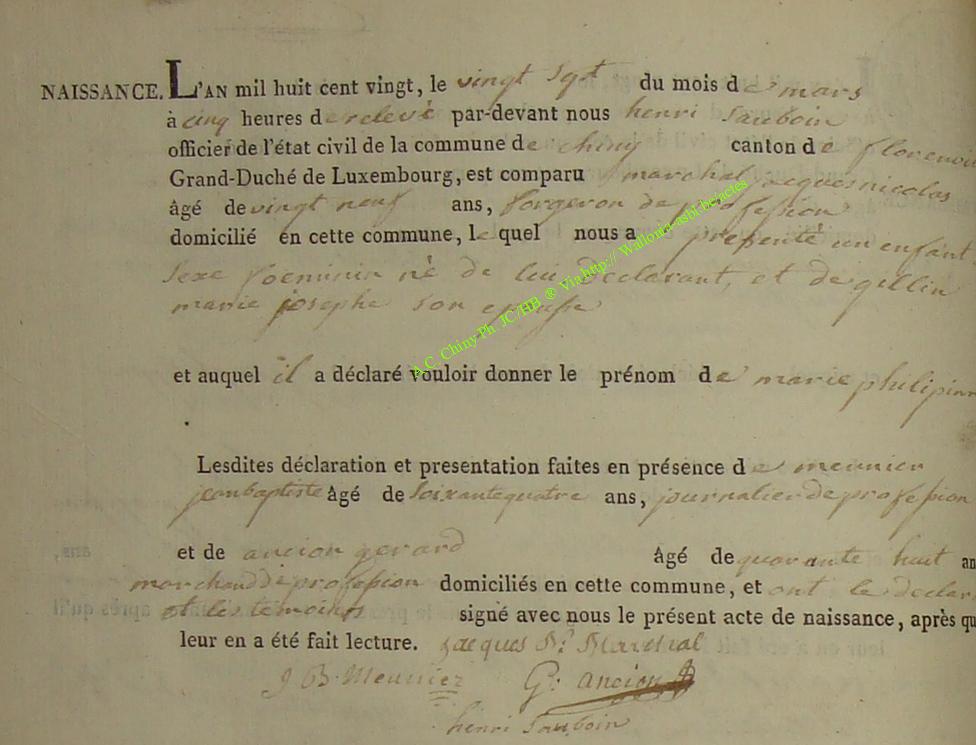 NAISSANCE. L'AN mil huit cent vingt, le vingt sept du mois de mars
à cinq heures de relevé par-devant nous henri Sauboin
officier de l'état civil de la commune de chiny canton de florenvil
Grand-Duché de Luxembourg, est comparu marchal jacques nicolas
âgé de vingt neuf ans, forgeron de profession
domicilié en cette commune, le quel nous a presenté un enfant
sexe foeminin né de lui declarant, et de gillin
marie josephe son epouse
et auquel il a déclaré vouloir donner le prénom de marie philipinne
Lesdites déclaration et presentation faites en présence de meunier
jean baptiste âgé de soixante quatre ans, journalier de profession
et de ancion gerard âgé de quarante huit an
marchand de profession domiciliés en cette commune, et ont le declar
et les temoins signé avec nous le présent acte de naissance, après qu
leur en a été fait lecture. Jacques N. Marchal
J B Meunier G: ancion
henri Sauboin
A.C. Chiny Ph. JC/HB ® Via http:// Wallonia-asbl.be/actes